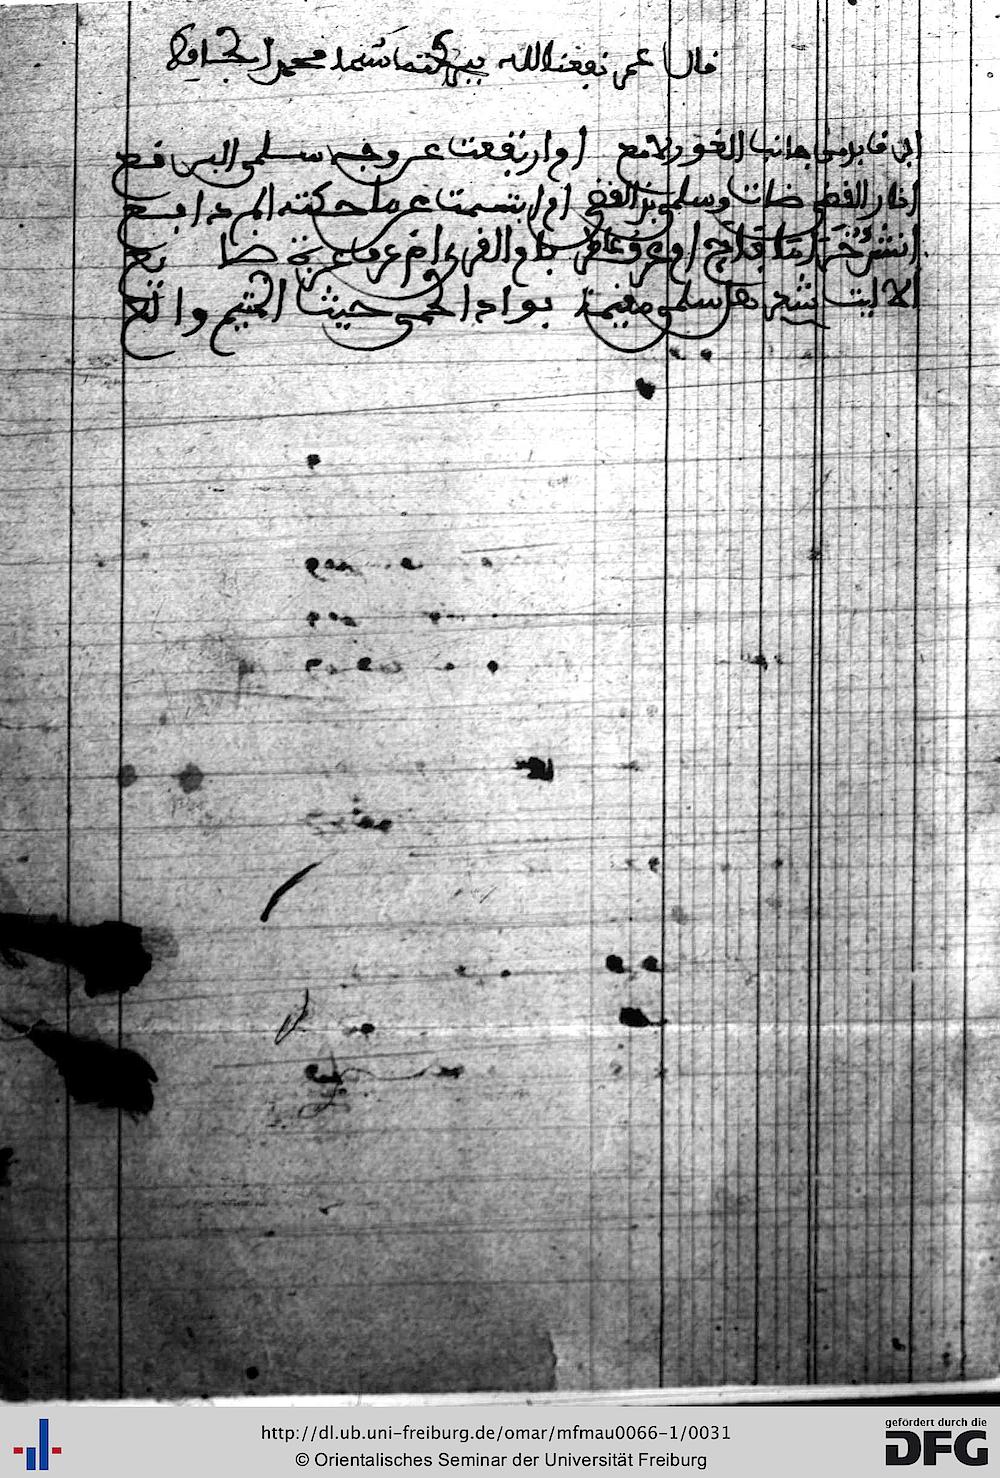 قال عمر نفعنا الله ببركته
ابرق بدا من جانب الغور لامع ام ارتفعت عن وجه سلمى البراقع
انار الغضى ضاءت وسلمى بذ الغضى ام ابتسمت عن ما حكته المدامع
انشر خزامى فاح ام عرف حاجر بام القرى ام عزة ضايع
الا ليت شعر هل سلمى مقيمة بواد الحمى حيث المتيم والع
http://dl.ub.uni-freiburg.de/omar/mfmau0066-1/0031
© Orientalisches Seminar der Universität Freiburg
gefördert durch die
DFG